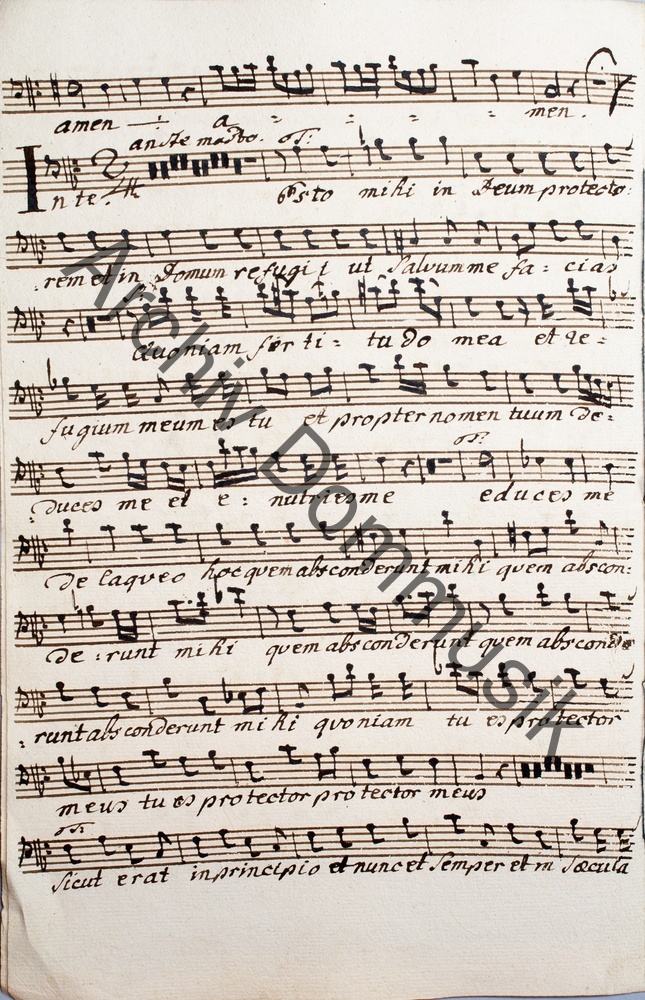 amen a men.
In te. Esto mihi in Deum protecto:
rem et in Domum refugij ut Salvum me fa: cias
Quoniam for ti: tu do mea et re:
fugium meum es tu et propter nomen tuum de:
Duces me et e: nutries me educes me
De laqveo hoc qvem absconderunt mihi qvem abscon:
De: runt mihi qvem absconderunt qvem abscon
: runt absconderunt mihi qvoniam tu es protector
meus tu es protector protector meus
Sicut erat in principio et nunc et Semper et in Sæcula
Archiv Dommusik